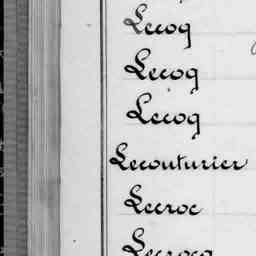 Lecoq
Lecoq
Lecoq
Lecouturier
Lecroc
Lecrocq